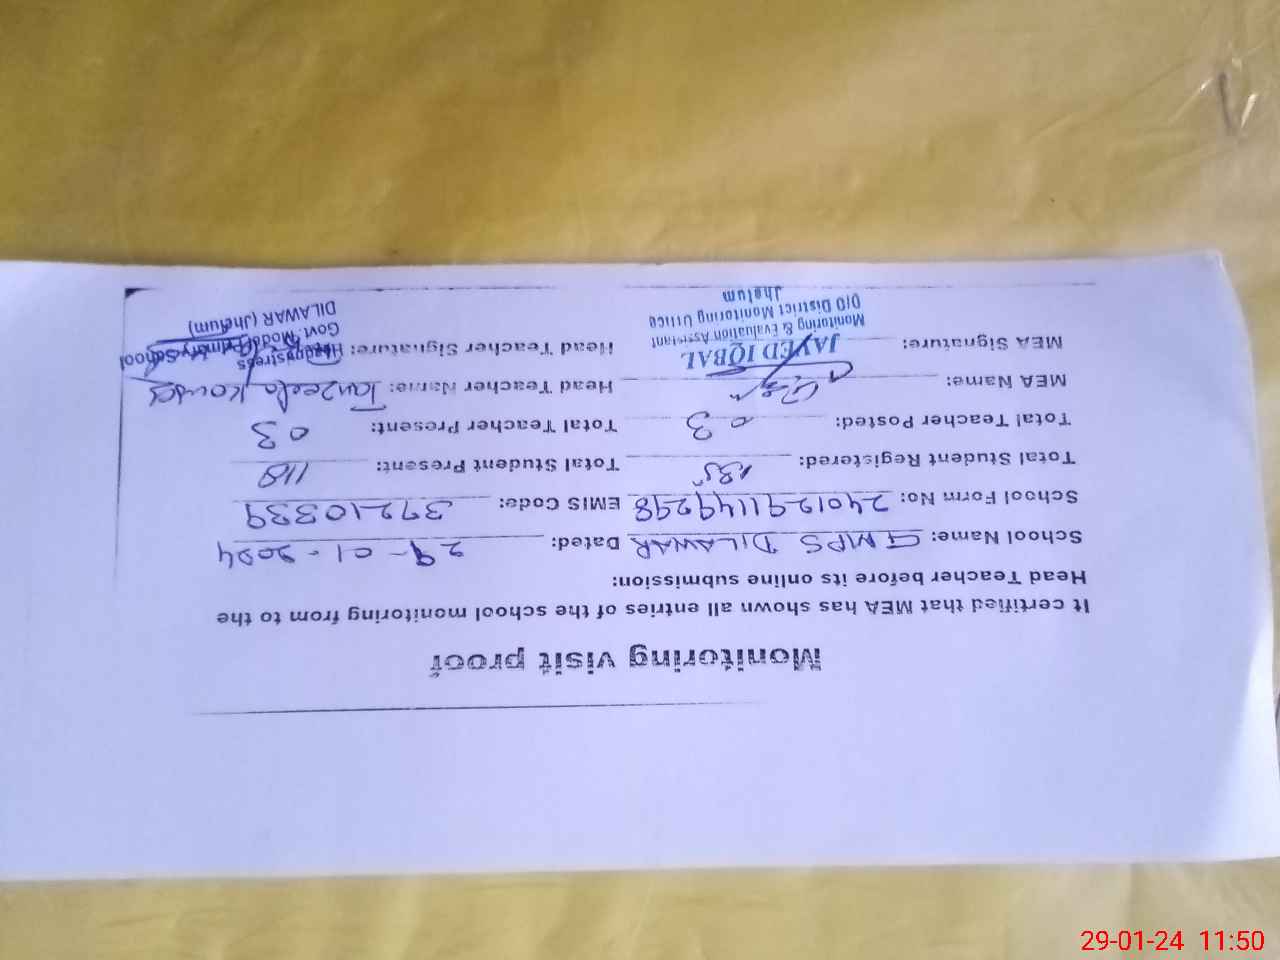 Monitoring visit proof
It certified that MEA has shown all entries of the school monitoring from to the
Head Teacher before its online submission:
School Name: GMPS DILAWAR Dated: 29-01-2024
School Form No: 2401291149298 EMIS Code: 37210339
Total Student Registered: 135 Total Student Present: 118
Total Teacher Posted: 03 Total Teacher Present: 03
MEA Name: Head Teacher Name: Tanzeela Kousar
MEA Signature: Head Teacher Signature:
JAVED IQBAL
Monitoring & Evaluation Assistant
O/O District Monitoring Office
Jhelum
Headmistress
Govt. Model Primary School
DILAWAR (Jhelum)
29-01-24 11:50